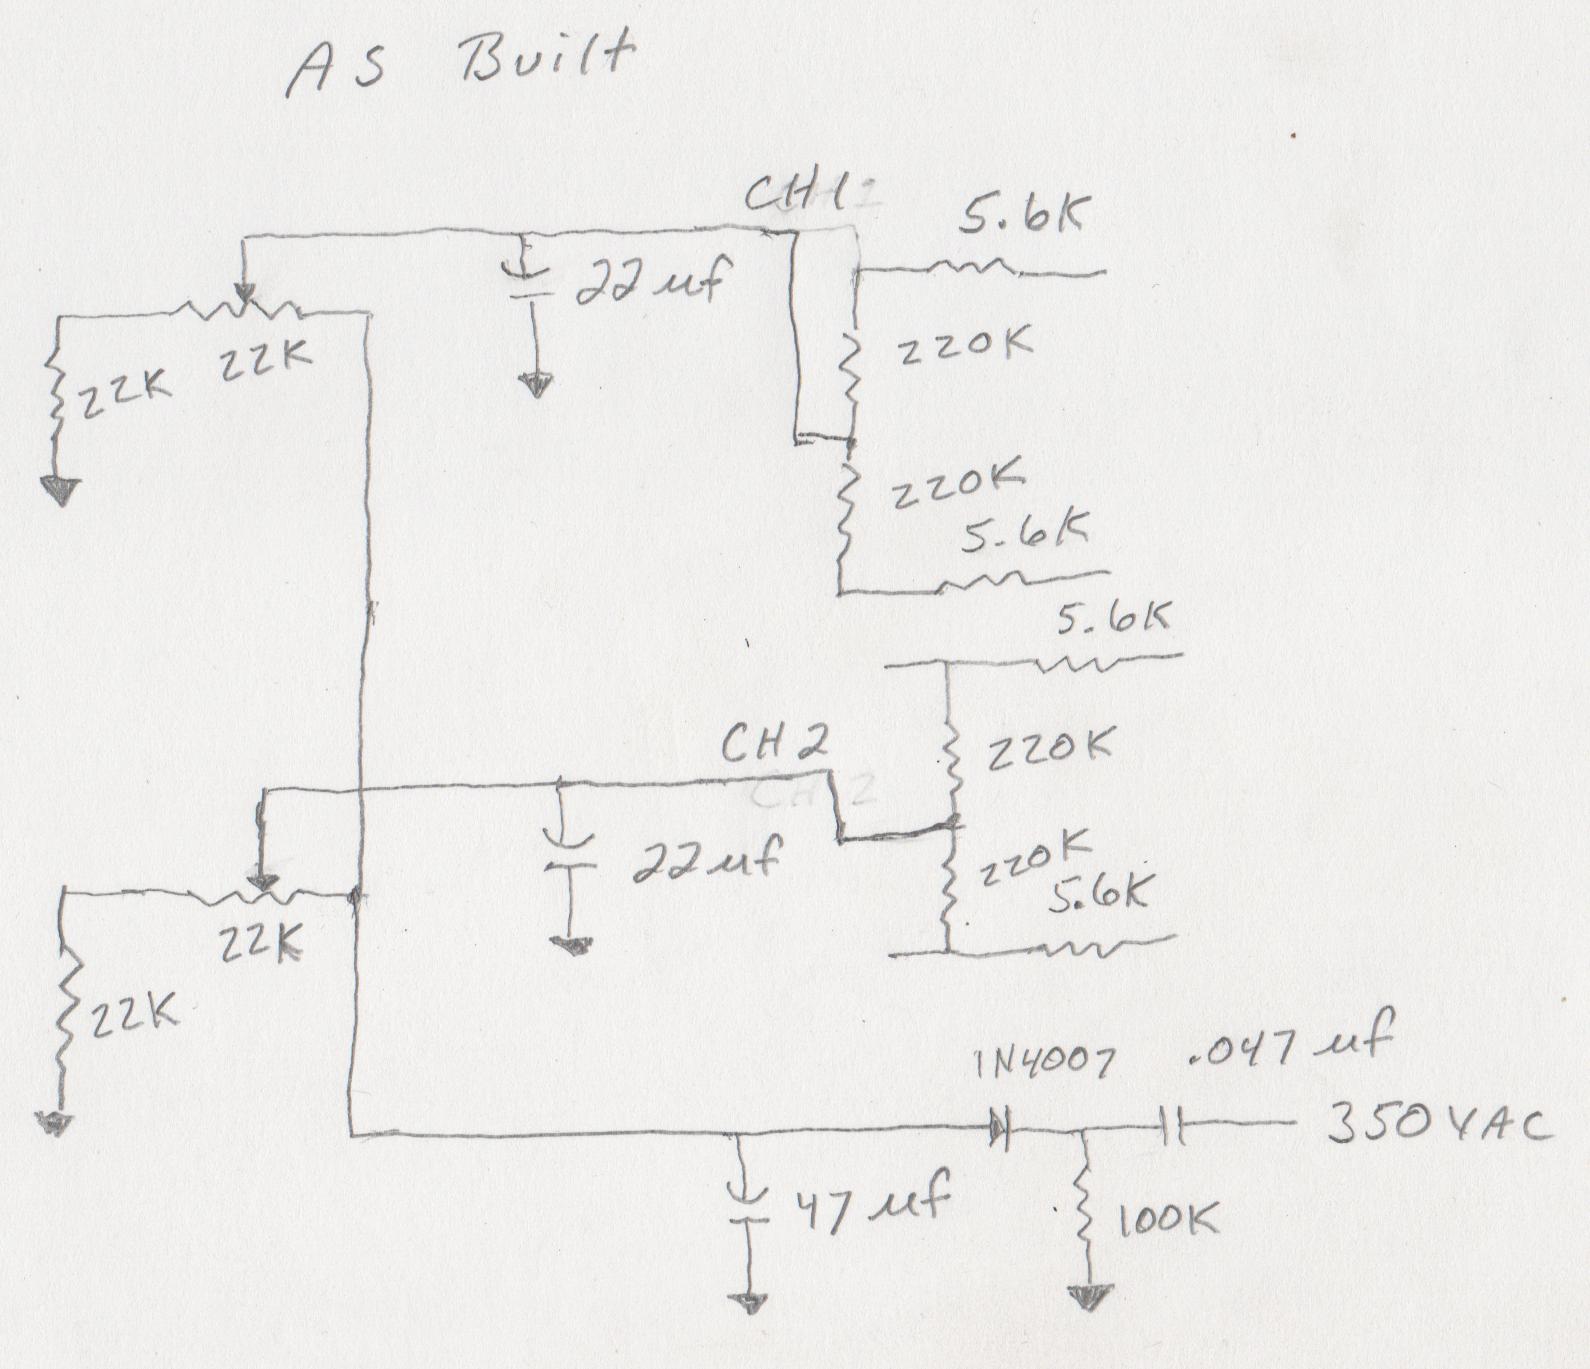 As Built
CH1
5.6K
22 uf
220K
22K
22K
220K
5.6K
5.6K
CH2
220K
22 uf
220K
5.6K
22K
22K
1N4007
.047 uf
350VAC
47 uf
100K